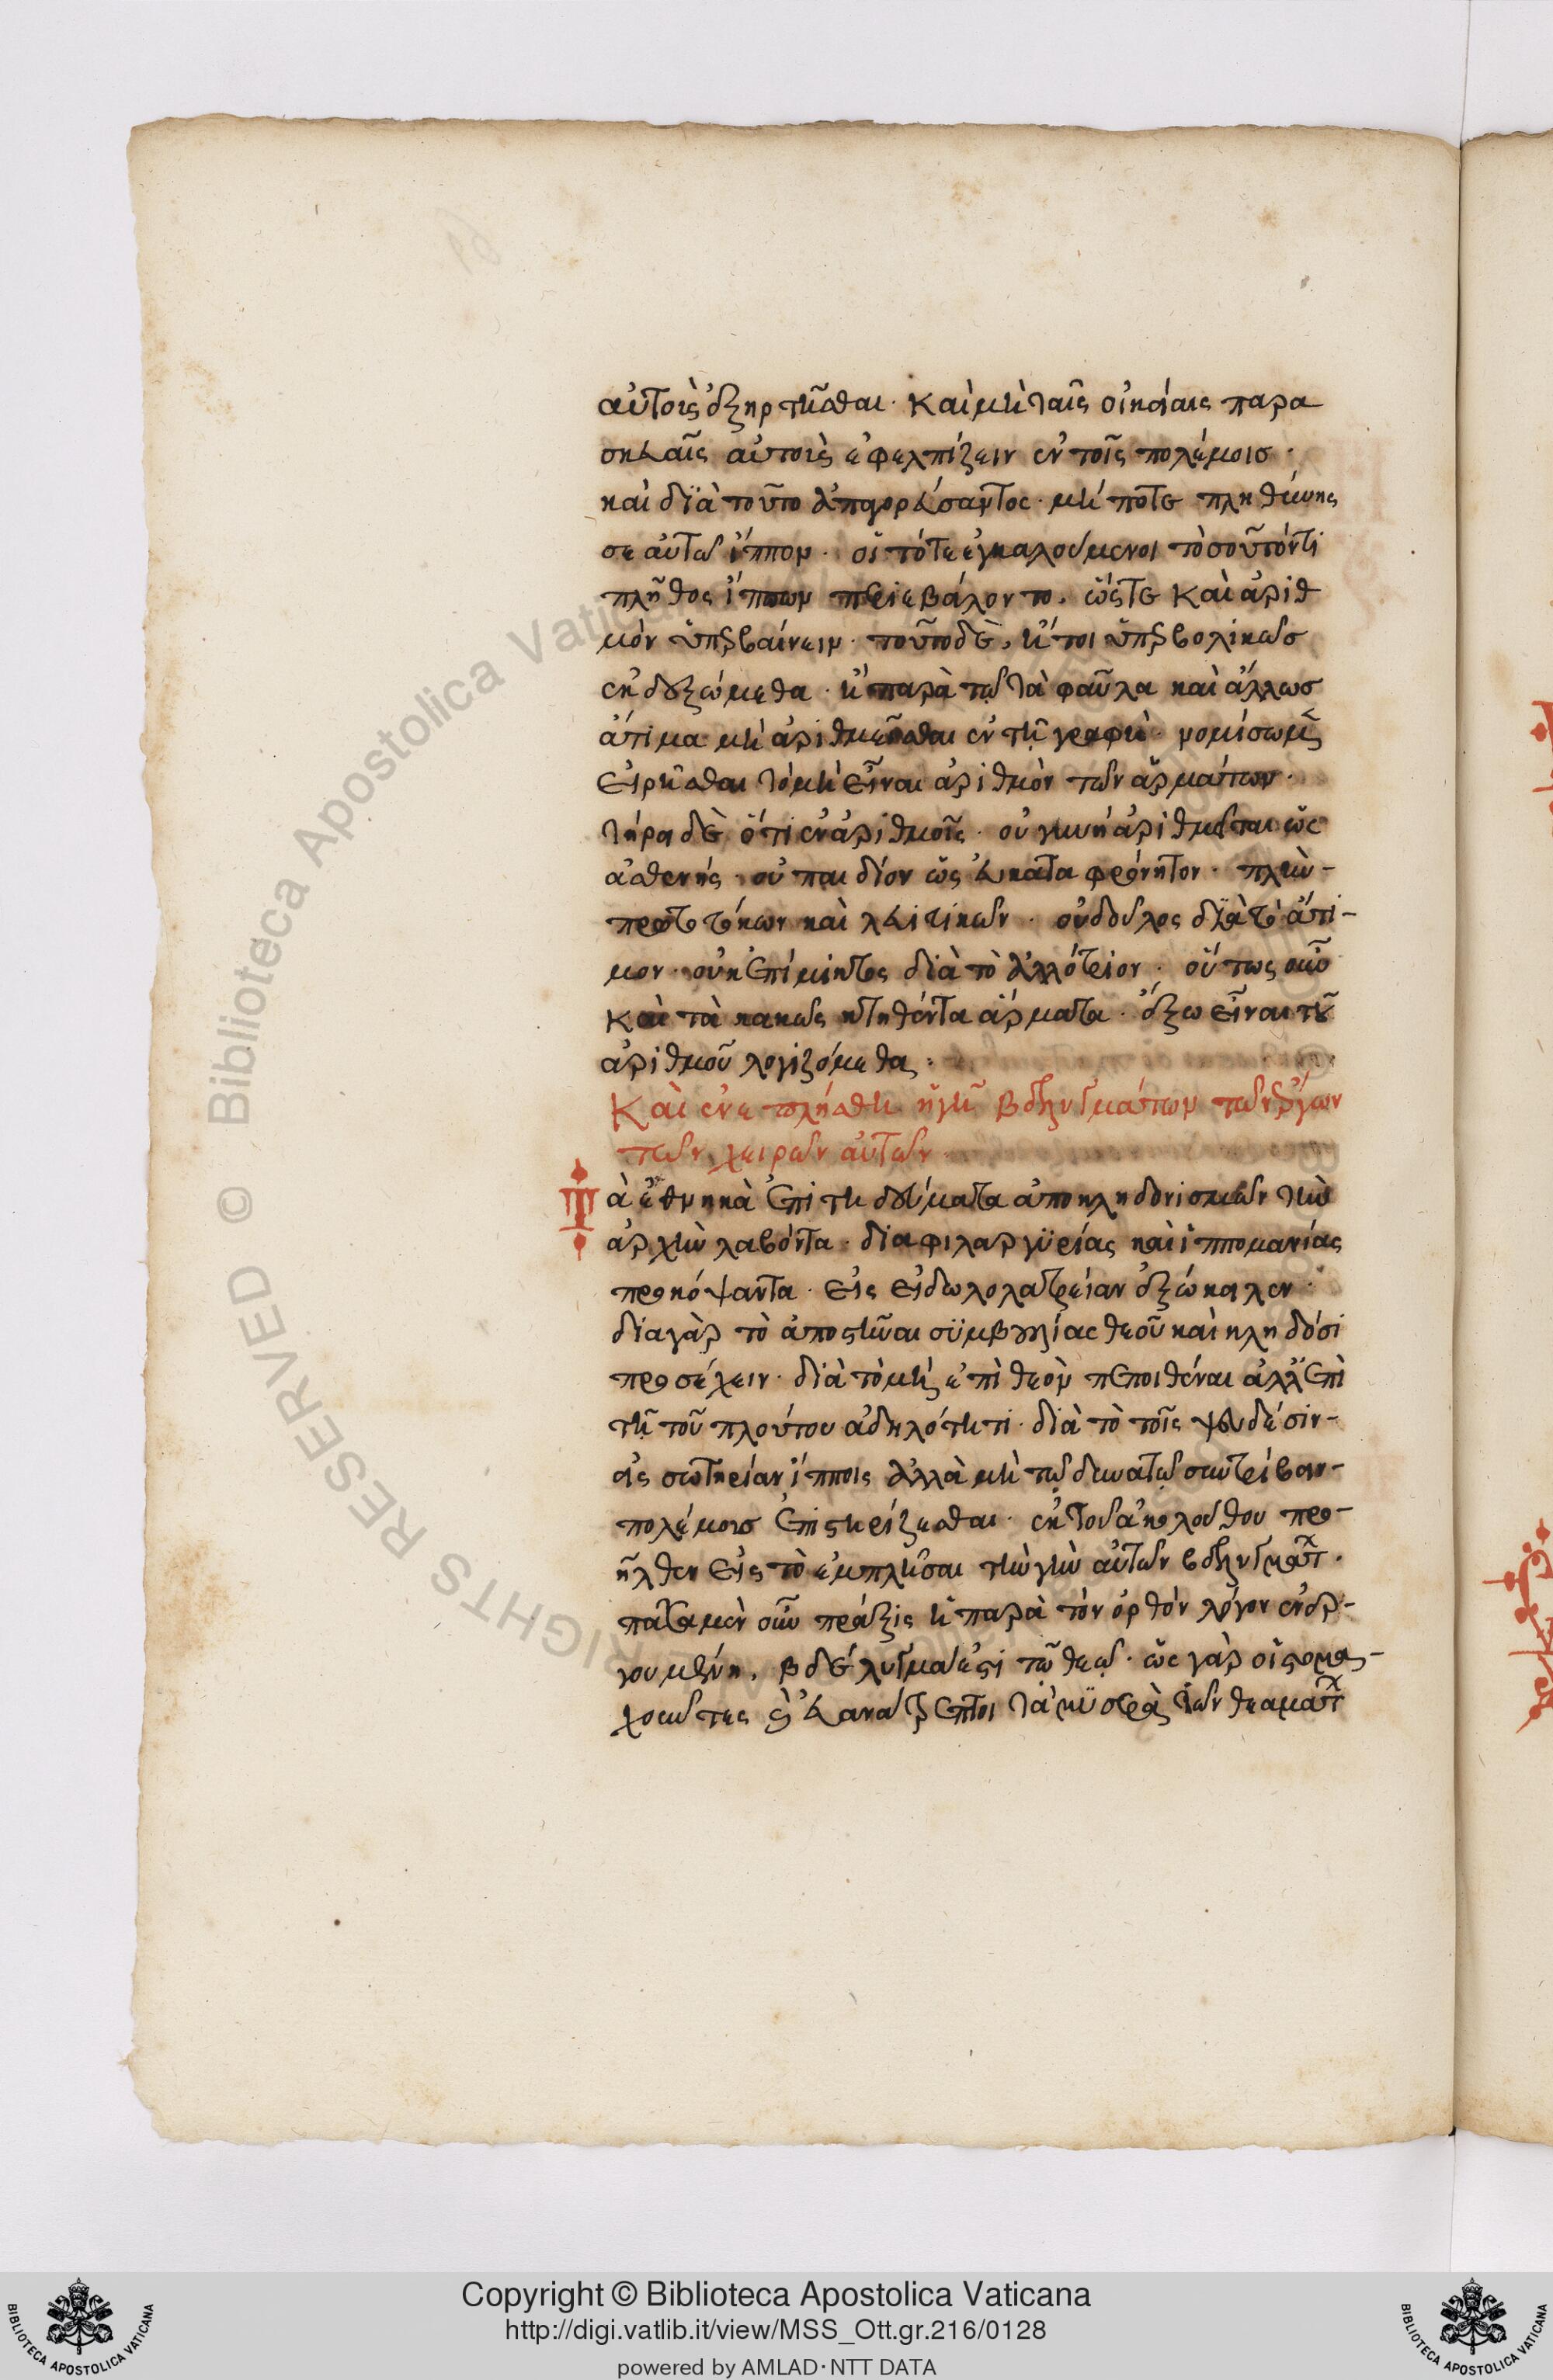 αὐτοὺς ἐξηρτῆσθαι· Καὶ μὴ ταῖς οἰκείαις παρα
σκευαῖς αὐτοὺς ἐφελπίζειν ἐν τοῖς πολέμοισ·
καὶ διὰ τοῦτο ἀπαγορεύσαντος· μή ποτε πληθύνης
σεαυτῶ ἵππον· οἱ τότε ἐγκαλούμενοι τοσοῦτόν τι
πλῆθος ἵππων περιεβάλοντο, ὥστε Καὶ ἀριθ
μὸν ὑπερβαίνειν· τοῦτο δὲ, ἤτοι ὑπερβολικῶσ
ἐκδεξώμεθα· ἢ παρὰ τῷ τὰ φαῦλα καὶ ἄλλωσ
ἄτιμα μὴ ἀριθμεῖσθαι ἐν τῇ γραφῇ· νομίσωμεν
εἰρῆσθαι τὸ μὴ εἶναι ἀριθμὸν τῶν ἁρμάτων·
τήρει δὲ ὅτι ἐν ἀριθμοῖς· οὐ γυνὴ ἀριθμεῖται ὡς
ἀσθενής· οὐ παιδίον ὡς εὐκαταφρόνητον· πλὴν
πρωτοτόκων καὶ λευιτικῶν· οὐ δοῦλος διὰ τὸ ἄτι-
μον· οὐκ ἐπίμικτος διὰ τὸ ἀλλότριον· οὕτως οὖν
Καὶ τὰ κακῶς κτηθέντα ἅρματα· ἔξω εἶναι τοῦ
ἀριθμοῦ λογιζόμεθα·
Καὶ ἐνεπλήσθη ἡ γῆ βδελυγμάτων τῶν ἔργων
τῶν χειρῶν αὐτῶν·
Τὰ ἐθνικὰ ἐπιτηδεύματα ἀπο κληδονισμῶν τὴν
ἀρχὴν λαβόντα· δια φιλαργυρίας καὶ ἱππομανίας
προκόψαντα· εἰς εἰδωλολατρείαν ἐξώκειλεν·
δια γὰρ τὸ ἀποστῆναι συμβουλίας θεοῦ καὶ κληδόσι
προσέχειν· διὰ τὸ μὴ ἐπὶ θεὸν πεποιθέναι ἀλλ' ἐπὶ
τῇ τοῦ πλούτου ἀδηλότητι· διὰ τὸ τοῖς ψευδέσιν-
εἰς σωτηρίαν ἵπποις ἀλλὰ μὴ τῷ δυνατῷ συντρίβειν-
πολέμους ἐπιστηρίζεσθαι· ἐκ τοῦ ἀκολούθου προ-
ῆλθεν εἰς τὸ ἐμπλῆσαι τὴν γῆν αὐτῶν βδελυγμάτων·
πᾶσα μὲν οὖν πρᾶξις ἡ παρὰ τὸν ὀρθὸν λόγον ἐνερ-
γουμένη, βδέλυγμά ἐστι τῷ θεῷ· ὡς γὰρ οἱ στομα-
χοῦντες καὶ εὐανάτρεπτοι τὰ μυσερὰ τῶν θεαμάτων